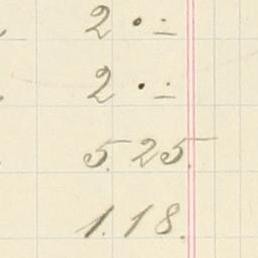 2 • -
2 • -
5.25.
1.18.